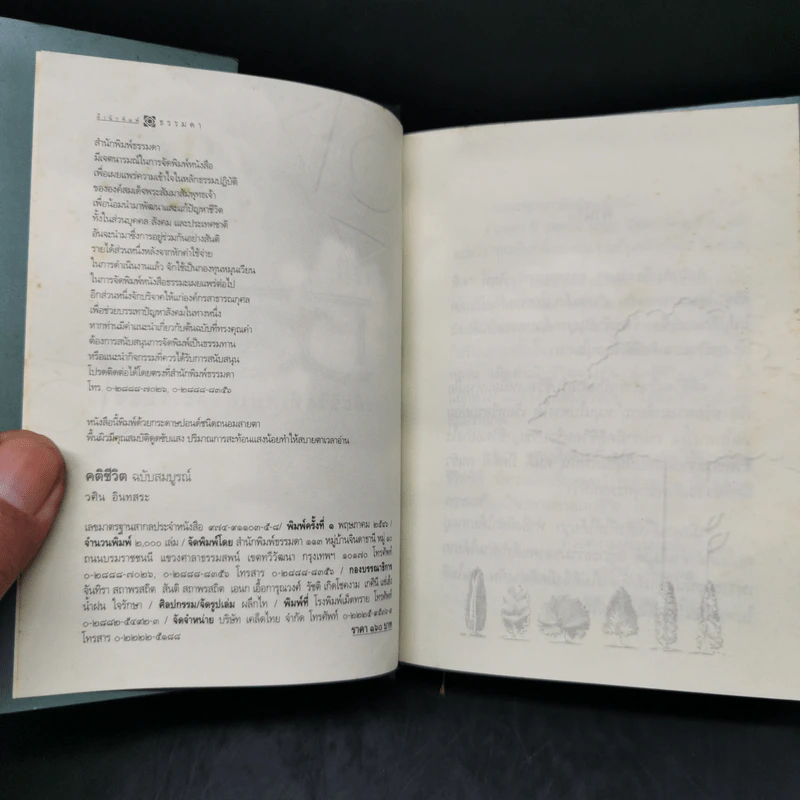 สำนักพิมพ์ ธรรมดา
สำนักพิมพ์ธรรมดา
มีเจตนารมณ์ในการจัดพิมพ์หนังสือ
เพื่อเผยแพร่ความเข้าใจในหลักธรรมปฏิบัติ
ขององค์สมเด็จพระสัมมาสัมพุทธเจ้า
เพื่อน้อมนำมาพัฒนาและแก้ปัญหาชีวิต
ทั้งในส่วนบุคคล สังคม และประเทศชาติ
อันจะนำมาซึ่งการอยู่ร่วมกันอย่างสันติ
รายได้ส่วนหนึ่งหลังจากหักค่าใช้จ่าย
ในการดำเนินงานแล้ว จักใช้เป็นกองทุนหมุนเวียน
ในการจัดพิมพ์หนังสือธรรมะเผยแพร่ต่อไป
อีกส่วนหนึ่งจักบริจาคให้แก่องค์กรสาธารณกุศล
เพื่อช่วยบรรเทาปัญหาสังคมในทางหนึ่ง
หากท่านมีคำแนะนำเกี่ยวกับต้นฉบับที่ทรงคุณค่า
ต้องการสนับสนุนการจัดพิมพ์เป็นธรรมทาน
หรือแนะนำกิจกรรมที่ควรได้รับการสนับสนุน
โปรดติดต่อได้โดยตรงที่สำนักพิมพ์ธรรมดา
โทร. ๐-๒๘๘๘-๗๐๒๖, ๐-๒๘๘๘-๘๓๕๖
หนังสือนี้พิมพ์ด้วยกระดาษปอนด์ชนิดถนอมสายตา
พื้นผิวมีคุณสมบัติดูดซับแสง ปริมาณการสะท้อนแสงน้อยทำให้สบายตาเวลาอ่าน
คติชีวิต ฉบับสมบูรณ์
วศิน อินทสระ
เลขมาตรฐานสากลประจำหนังสือ ๙๗๔-๙๑๑๐๓-๕-๘/ พิมพ์ครั้งที่ ๑ พฤษภาคม ๒๕๔๖/
จำนวนพิมพ์ ๒,๐๐๐ เล่ม / จัดพิมพ์โดย สำนักพิมพ์ธรรมดา ๑๑๓ หมู่บ้านจินดาธานี หมู่ ๑๐
ถนนบรมราชชนนี แขวงศาลาธรรมสพน์ เขตทวีวัฒนา กรุงเทพฯ ๑๐๑๗๐ โทรศัพท์
๐-๒๘๘๘-๗๐๒๖, ๐-๒๘๘๘-๘๓๕๖ โทรสาร ๐-๒๘๘๘-๘๓๕๖ / กองบรรณาธิการ
จันทิรา สถาพรสถิต สันติ สถาพรสถิต เอนก เอื้อการุณวงศ์ รัชตี เกิดโชคงาม เกศินี
น้ำฝน ใจรักษา / ศิลปกรรม/จัดรูปเล่ม ผลึกไท / พิมพ์ที่ โรงพิมพ์เม็ดทราย โทรศัพท์
๐-๒๘๘๒-๕๔๙๒-๓ / จัดจำหน่าย บริษัท เคล็ดไทย จำกัด โทรศัพท์
โทรสาร ๐-๒๒๒๒-๕๑๘๘
ราคา ๑๖๐ บาท